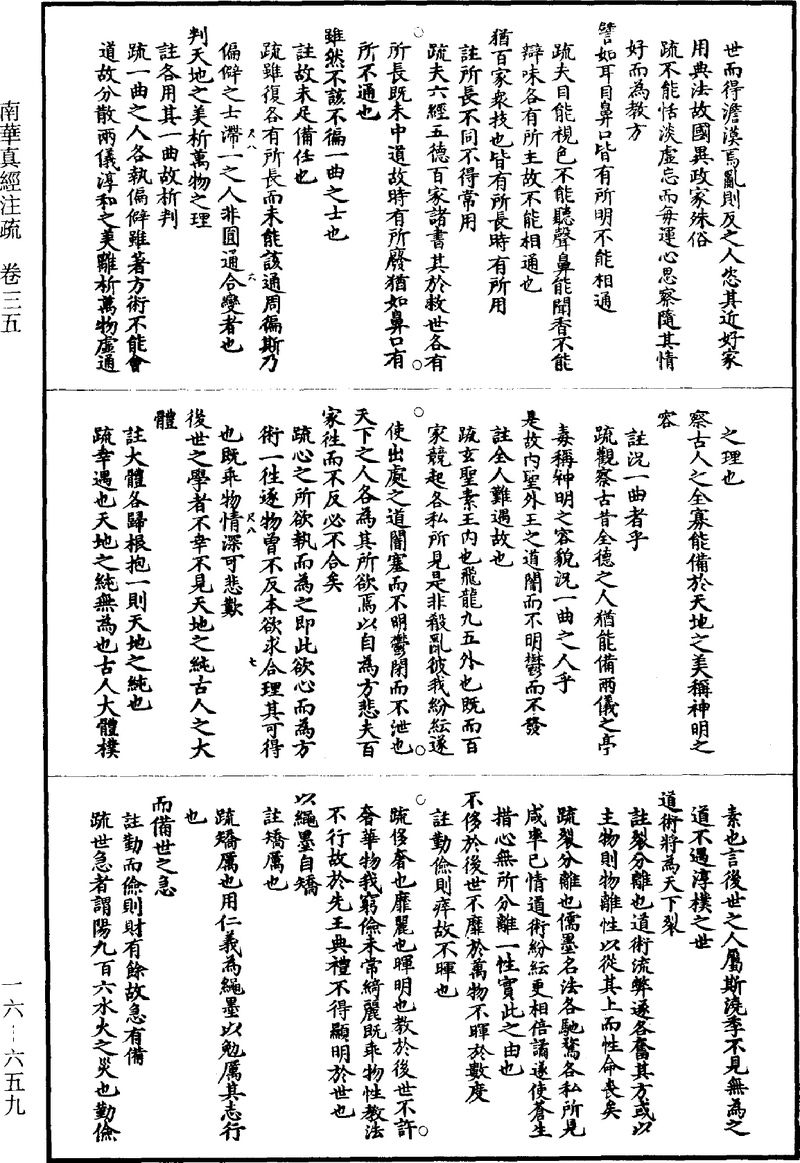 南華真經注疏　卷三五
世而得澹漠焉亂則反之人恣其近好家
用典法故國異政家殊俗
疏不能恬淡虛忘而每運心思察隨其情
好而為教方
譬如耳目鼻口皆有所明不能相通
疏夫目能視色不能聽聲鼻能聞香不能
辯味各有所主故不能相通也
猶百家衆技也皆有所長時有所用
註所長不同不得常用
疏夫六經五德百家諸書其於救世各有
所長既未中道故時有所廢猶如鼻口有
所不通也
雖然不該不徧一曲之士也
註故未足備任也
疏雖復各有所長而未能該通周徧斯乃
偏僻之士滯一之人非圓通合變者也
判天地之美析萬物之理
註各用其一曲故析判
疏一曲之人各執偏僻雖著方術不能會
道故分散兩儀淳和之美離析萬物虛通
之理也
察古人之全寡能備於天地之美稱神明之
容
註況一曲者乎
疏觀察古昔全德之人猶能備兩儀之亭
毒稱神明之容貌況一曲之人乎
是故內聖外王之道闇而不明鬱而不發
註全人難遇故也
疏玄聖素王內也飛龍九五外也既而百
家競起各私所見是非殽亂彼我紛紜遂
使出處之道闇塞而不明鬱閉而不泄也
天下之人各為其所欲焉以自為方悲夫百
家徃而不反必不合矣
疏心之所欲執而為之即此欲心而為方
術一徃逐物曾不反本欲求合理其可得
也既乖物情深可悲歎
後世之學者不幸不見天地之純古人之大
體
註大體各歸根抱一則天地之純也
疏幸遇也天地之純無為也古人大體樸
素也言後世之人屬斯澆季不見無為之
道不遇淳樸之世
道術將為天下裂
註裂分離也道術流弊遂各奮其方或以
主物則物離性以從其上而性命喪矣
疏裂分離也儒墨名法各馳騖各私所見
咸率己情道術紛紜更相倍譎遂使蒼生
措心無所分離一性實此之由也
不侈於後世不靡於萬物不暉於數度
註勤儉則瘁故不暉也
疏侈奢也靡麗也暉明也教於後世不許
奢華物我窮儉未常綺麗既乖物性教法
不行故於先王典禮不得顯明於世也
以繩墨自矯
註矯厲也
疏矯厲也用仁義為繩墨以勉厲其志行
也
而備世之急
註勤而儉則財有餘故急有備
疏世急者謂陽九百六水火之災也勤儉
一六—六五九